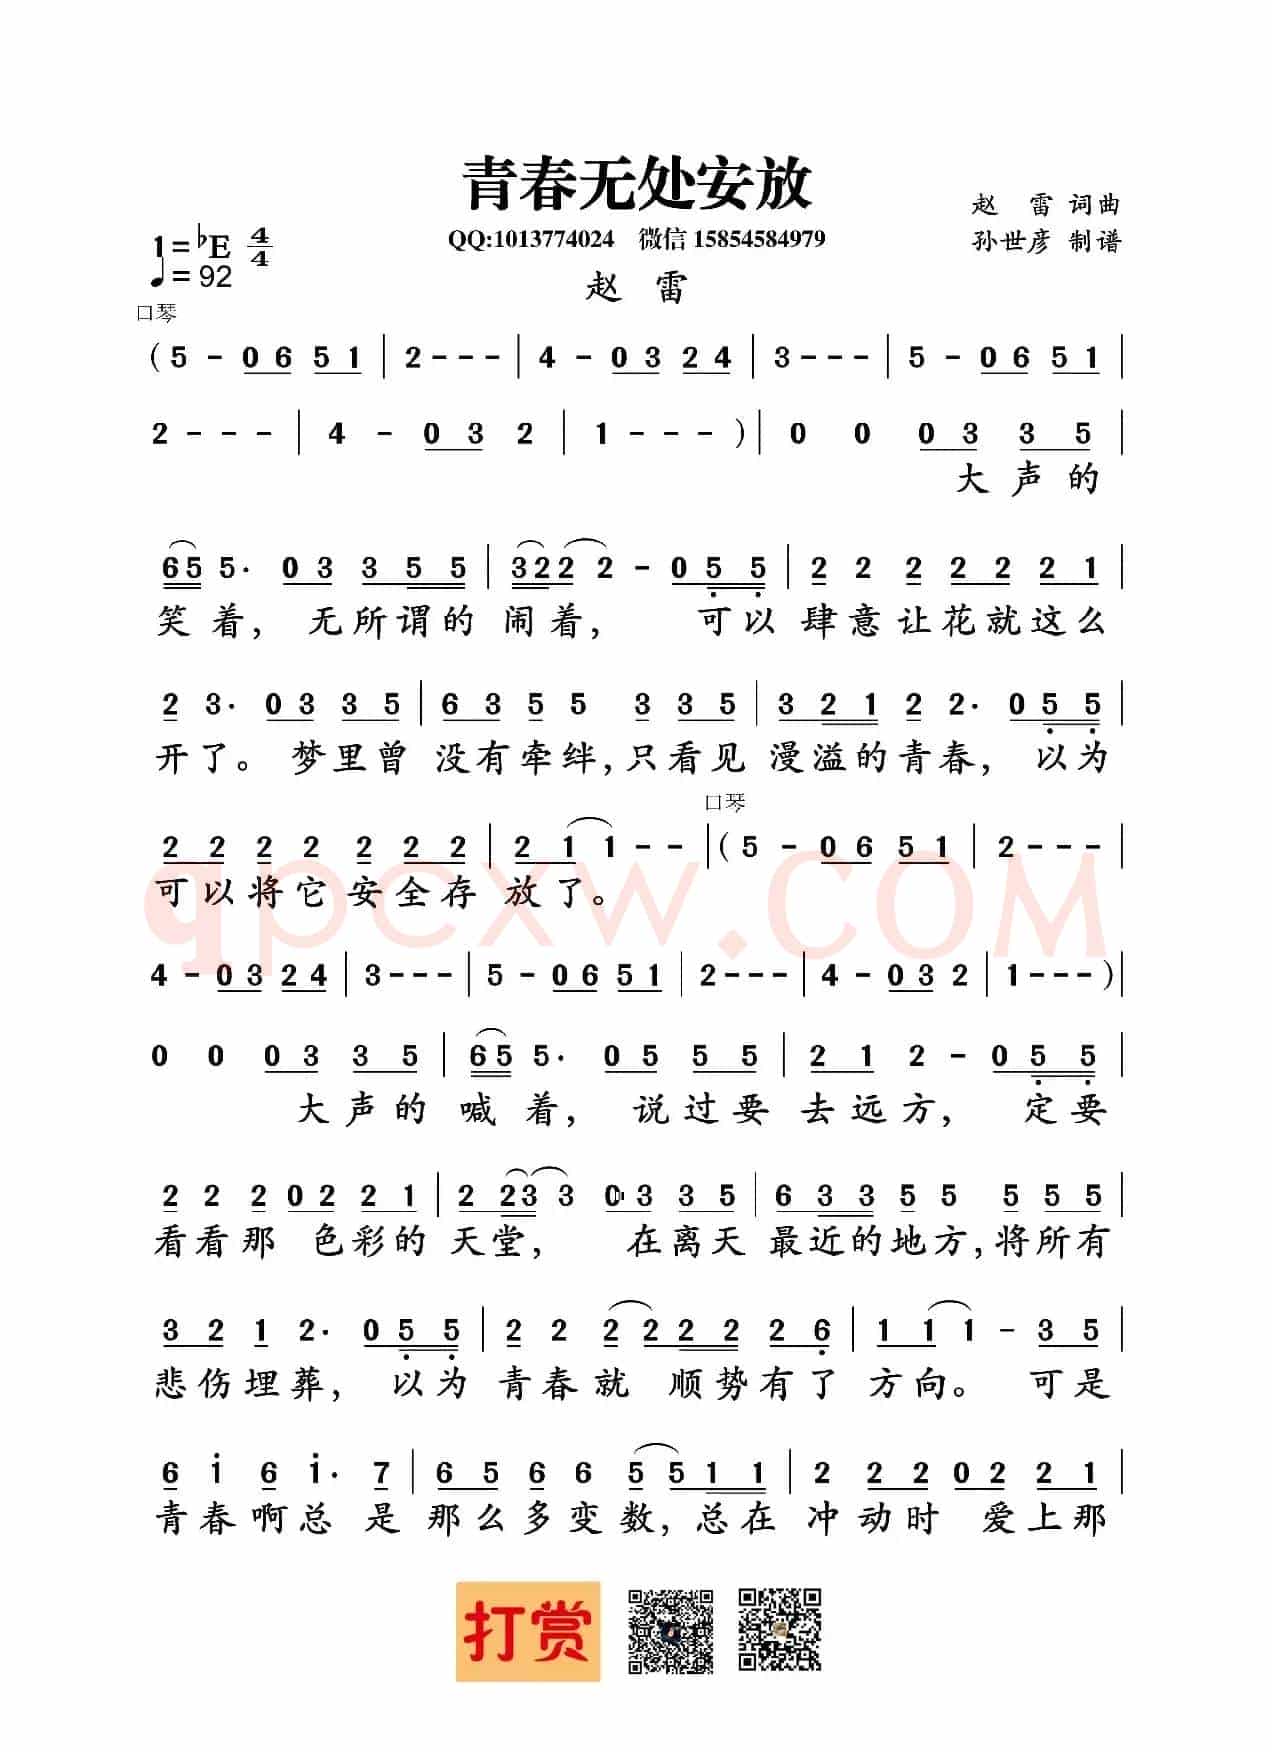 青春无处安放
赵 雷 词曲
1=♭E 4/4
QQ:1013774024 微信 15854584979
孙世彦 制谱
♩= 92
赵 雷
口琴
( 5 - 0 6 5 1 | 2 - - - | 4 - 0 3 2 4 | 3 - - - | 5 - 0 6 5 1 |
2 - - - | 4 - 0 3 2 | 1 - - - ) | 0 0 0 3 3 5 |
大声的
6 5 5· 0 3 3 5 5 | 3 2 2 2 - 0 5̣ 5̣ | 2 2 2 2 2 2 1 |
笑着, 无所谓的 闹着, 可以 肆意让花就这么
2 3· 0 3 3 5 | 6 3 5 5 3 3 5 | 3 2 1 2 2· 0 5̣ 5̣ |
开了。 梦里曾 没有牵绊,只看见 漫溢的青春, 以为
口琴
2 2 2 2 2 2 2 | 2 1 1 - - | ( 5 - 0 6 5 1 | 2 - - - |
可以将它安全存 放了。
qpcxw.COM
4 - 0 3 2 4 | 3 - - - | 5 - 0 6 5 1 | 2 - - - | 4 - 0 3 2 | 1 - - - ) |
0 0 0 3 3 5 | 6 5 5· 0 5 5 5 | 2 1 2 - 0 5̣ 5̣ |
大声的 喊着, 说过要 去远方, 定要
2 2 2 0 2 2 1 | 2 2 3 3 0 3 3 5 | 6 3 3 5 5 5 5 5 |
看看那 色彩的 天堂, 在离天 最近的地方,将所有
3 2 1 2· 0 5̣ 5̣ | 2 2 2 2 2 2 2 6̣ | 1 1 1 - 3 5 |
悲伤埋葬, 以为 青春就 顺势有了 方向。 可是
6 1̇ 6 1̇· 7 | 6 5 6 6 5 5 1 1 | 2 2 2 0 2 2 1 |
青春啊总 是 那么多变数,总在 冲动时 爱上那
打赏